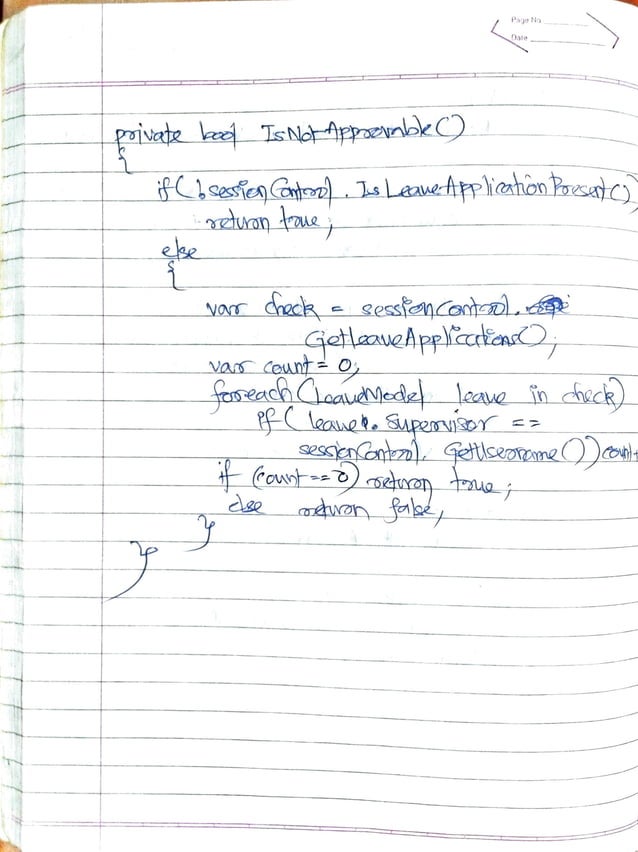 Page No
Date
private bool IsNotApproevable()
{
if(!sessionControl.IsLeaveApplicationPresent()
return true;
else
{
var check = sessionControl.
GetLeaveApplications();
var count = 0;
foreach(LeaveModel leave in check)
if(leave.Supervisor ==
sessionControl.GetUsername())count+
if (count==0) return true;
else return false,
}
}